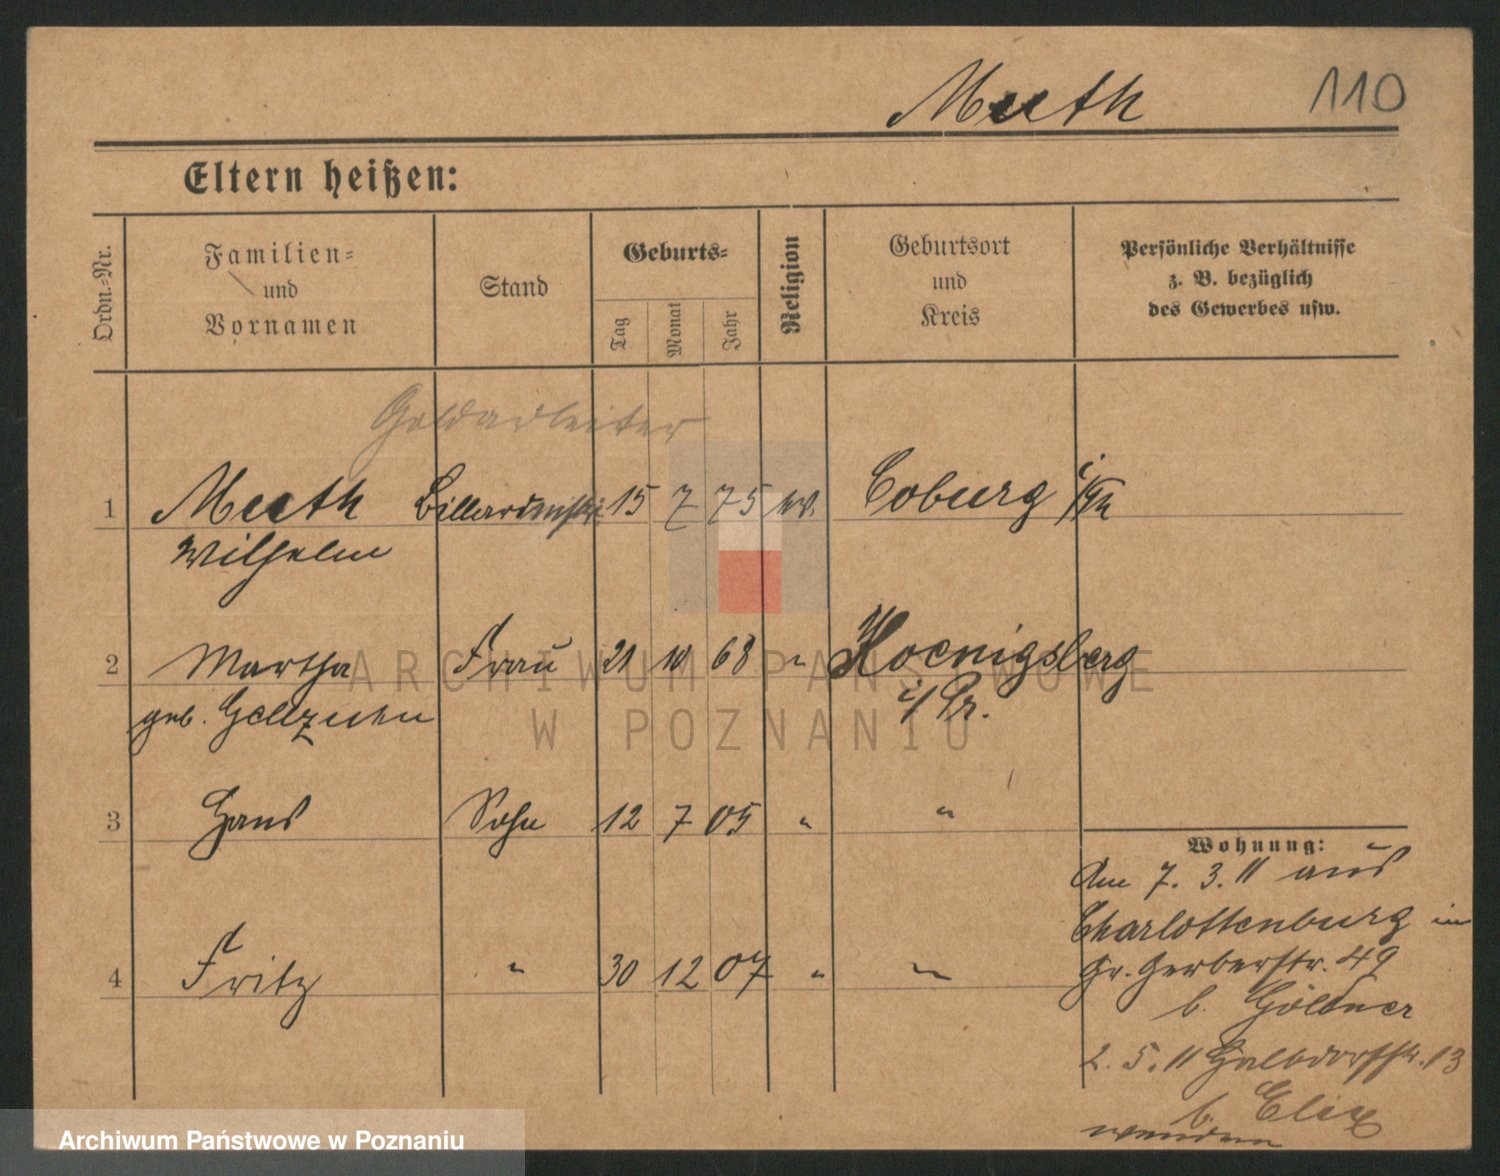 Meeth
110
Eltern heißen:
Ordn.-Nr.
Familien-
und
Vornamen
Stand
Geburts-
Tag
Monat
Jahr
Religion
Geburtsort
und
Kreis
Persönliche Verhältnisse
z. B. bezüglich
des Gewerbes usw.
Goldarbeiter
1 Meeth 15 7 75 ev. Coburg
Wilhelm
2 Martha Frau 21 10 68 " Koenigsberg
geb. i/Pr.
3 Hans Sohn 12 7 05 " "
4 Fritz " 30 12 07 " "
Wohnung:
Am 7. 3. 11 aus
Charlottenburg in
Gr. Gerberstr. 49
b. Göldner
2. 5. 11 Halbdorfstr. 13
b.
wenden
ARCHIWUM PAŃSTWOWE
W POZNANIU
Archiwum Państwowe w Poznaniu